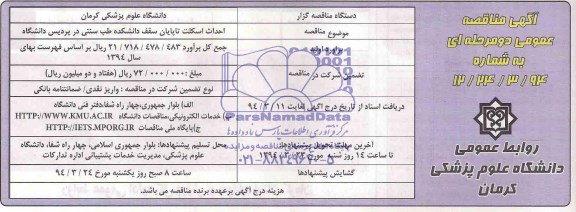 آگهی مناقصه
عمومی دومرحله ای
به شماره
۱۲/۲۴/۳/۹۴
روابط عمومی
دانشگاه علوم پزشکی
کرمان
دستگاه مناقصه گزار
دانشگاه علوم پزشکی کرمان
موضوع مناقصه
احداث اسکلت تاپایان سقف دانشکده طب سنتی در پردیس دانشگاه
برآورد اولیه
جمع کل برآورد ۴۸۳ / ۴۷۸ / ۷۱۸ / ۲۱ ریال بر اساس فهرست بهای
سال ۱۳۹۴
تضمین شرکت در مناقصه
مبلغ : ۰۰۰/ ۰۰۰/ ۷۲ ریال (هفتاد و دو میلیون ریال)
نوع تضمین شرکت در مناقصه : واریز نقدی/ ضمانتنامه بانکی
دریافت اسناد از تاریخ درج آگهی لغایت ۱۱ / ۳ / ۹۴
الف) بلوار جمهوری،چهار راه شفا،دفتر فنی دانشگاه
ب) خدمات الکترونیکی،مناقصات دانشگاه HTTP://WWW.KMU.AC.IR
ج)پایگاه ملی مناقصات HTTP://IETS.MPORG.IR
آخرین مهلت تحویل پیشنهادها:
تا ساعت ۱۴ روز شنبه مورخ ۲۳ / ۳ / ۱۳۹۴
محل تسلیم پیشنهادها: بلوار جمهوری اسلامی، چهار راه شفا، دانشگاه
علوم پزشکی، مدیریت خدمات پشتیبانی اداره تدارکات
گشایش پیشنهادها
ساعت ۸ صبح روز یکشنبه مورخ ۲۴ / ۳ / ۹۴
هزینه درج آگهی برعهده برنده مناقصه می باشد.
ParsNamadData
۰۲۱-۸۸۳۴۹۶۷۰-۵